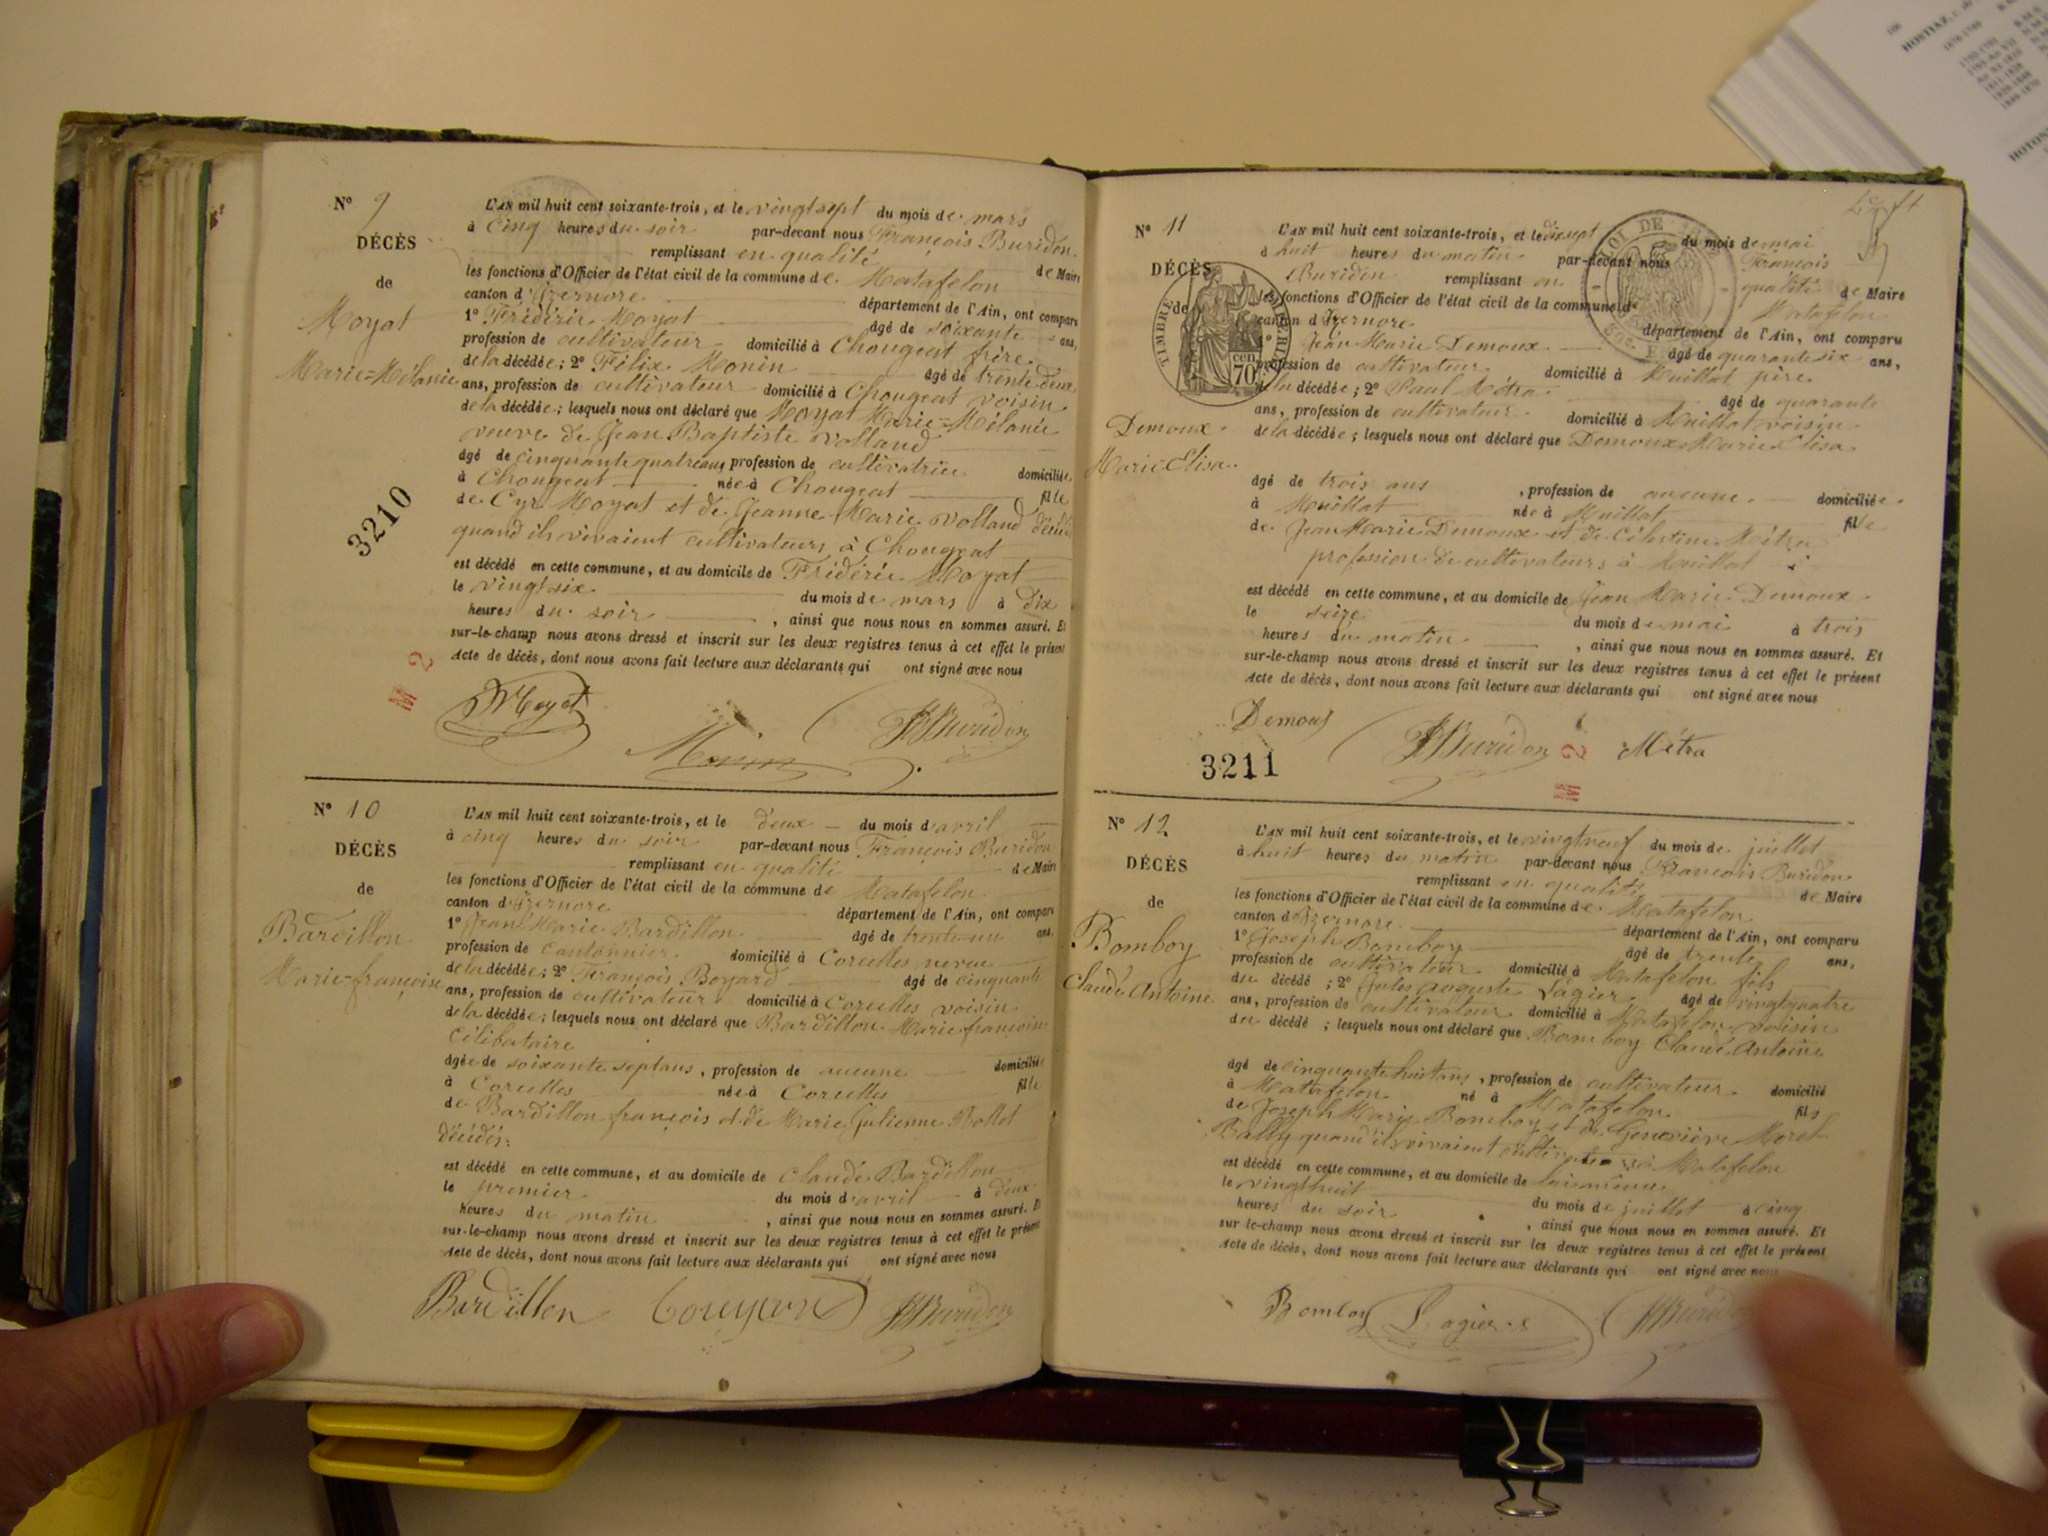 N° 9
DÉCÈS
de
Moyat
Marie=Mélanie
L'AN mil huit cent soixante-trois, et le vingt sept du mois de mars
à cinq heures du soir par-devant nous François Buridon
remplissant en qualité de Maire
les fonctions d'Officier de l'état civil de la commune de Matafelon
canton d'Izernore département de l'Ain, ont comparu
1° Frédéric Moyat âgé de soixante ans,
profession de cultivateur domicilié à Chougeat frère
de la décédée; 2° Félix Monin âgé de trente deux
ans, profession de cultivateur domicilié à Chougeat voisin
de la décédée; lesquels nous ont déclaré que Moyat Marie=Mélanie
veuve de Jean Baptiste Volland
âgé de cinquante quatre ans profession de cultivatrice domiciliée
à Chougeat née à Chougeat fille
de Cyr Moyat et de Jeanne Marie Volland
quand ils vivaient cultivateurs à Chougeat
est décédé en cette commune, et au domicile de Frédéric Moyat
le vingt six du mois de mars à dix
heures du soir, ainsi que nous nous en sommes assuré. Et
sur-le-champ nous avons dressé et inscrit sur les deux registres tenus à cet effet le présent
Acte de décès, dont nous avons fait lecture aux déclarants qui ont signé avec nous
3210
M 2
Moyat
Monin
Buridon
N° 10
DÉCÈS
de
Bardillon
Marie-françoise
L'AN mil huit cent soixante-trois, et le deux du mois d'avril
à cinq heures du soir par-devant nous François Buridon
remplissant en qualité de Maire
les fonctions d'Officier de l'état civil de la commune de Matafelon
canton d'Izernore département de l'Ain, ont comparu
1° Jean Marie Bardillon âgé de trente un ans,
profession de cantonnier domicilié à Corcelles neveu
de la décédée; 2° François âgé de cinquante
ans, profession de cultivateur domicilié à Corcelles voisin
de la décédée; lesquels nous ont déclaré que Bardillon Marie françoise
Célibataire
âgée de soixante sept ans, profession de aucune domiciliée
à Corcelles née à Corcelles fille
de Bardillon françois et de Marie Julienne
décédés
est décédé en cette commune, et au domicile de Claude Bardillon
le premier du mois d'avril à deux
heures du matin, ainsi que nous nous en sommes assuré. Et
sur-le-champ nous avons dressé et inscrit sur les deux registres tenus à cet effet le présent
Acte de décès, dont nous avons fait lecture aux déclarants qui ont signé avec nous
Bardillon Buridon
N° 11
DÉCÈS
de
TIMBRE IMPÉRIAL
70 cen
Demoux
Marie Elisa
L'AN mil huit cent soixante-trois, et le dix sept du mois de mai
à huit heures du matin par-devant nous François
Buridon remplissant en qualité de Maire
les fonctions d'Officier de l'état civil de la commune de Matafelon
canton d'Izernore département de l'Ain, ont comparu
1° Jean Marie Demoux âgé de quarante six ans,
profession de cultivateur domicilié à Huillat père
de la décédée; 2° Paul Métra âgé de quarante
ans, profession de cultivateur domicilié à Huillat voisin
de la décédée; lesquels nous ont déclaré que Demoux Marie Elisa
âgé de trois ans, profession de aucune domiciliée
à Huillat née à Huillat fille
de Jean Marie Demoux et de Célestine Métra
profession de cultivateurs à Huillat
est décédé en cette commune, et au domicile de Jean Marie Demoux
le seize du mois de mai à trois
heures du matin, ainsi que nous nous en sommes assuré. Et
sur-le-champ nous avons dressé et inscrit sur les deux registres tenus à cet effet le présent
Acte de décès, dont nous avons fait lecture aux déclarants qui ont signé avec nous
Demoux Buridon Métra
3211
M 2
N° 12
DÉCÈS
de
Bomboy
Claude Antoine
L'AN mil huit cent soixante-trois, et le vingt neuf du mois de juillet
à huit heures du matin par-devant nous François Buridon
remplissant en qualité de Maire
les fonctions d'Officier de l'état civil de la commune de Matafelon
canton d'Izernore département de l'Ain, ont comparu
1° Joseph Bomboy âgé de trente ans,
profession de cultivateur domicilié à Matafelon fils
du décédé; 2° Jules Auguste Lagier âgé de vingt quatre
ans, profession de cultivateur domicilié à Matafelon voisin
du décédé; lesquels nous ont déclaré que Bomboy Claude Antoine
âgé de cinquante huit ans, profession de cultivateur domicilié
à Matafelon né à Matafelon fils
de Joseph Marie Bomboy et de Geneviève Morel
Bally quand ils vivaient cultivateurs à Matafelon
est décédé en cette commune, et au domicile de
le vingt huit du mois de juillet à cinq
heures du soir, ainsi que nous nous en sommes assuré. Et
sur-le-champ nous avons dressé et inscrit sur les deux registres tenus à cet effet le présent
Acte de décès, dont nous avons fait lecture aux déclarants qui ont signé avec nous
Bomboy Lagier Buridon